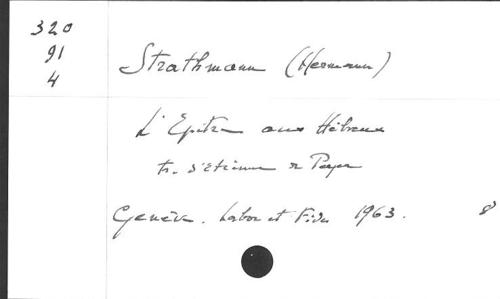 320
91
4
Strathmann (Hermann)
L'Epitre aux Hébreux
tr. d'Etienne de Peyer
Genève. Labor et Fides 1963. 8°